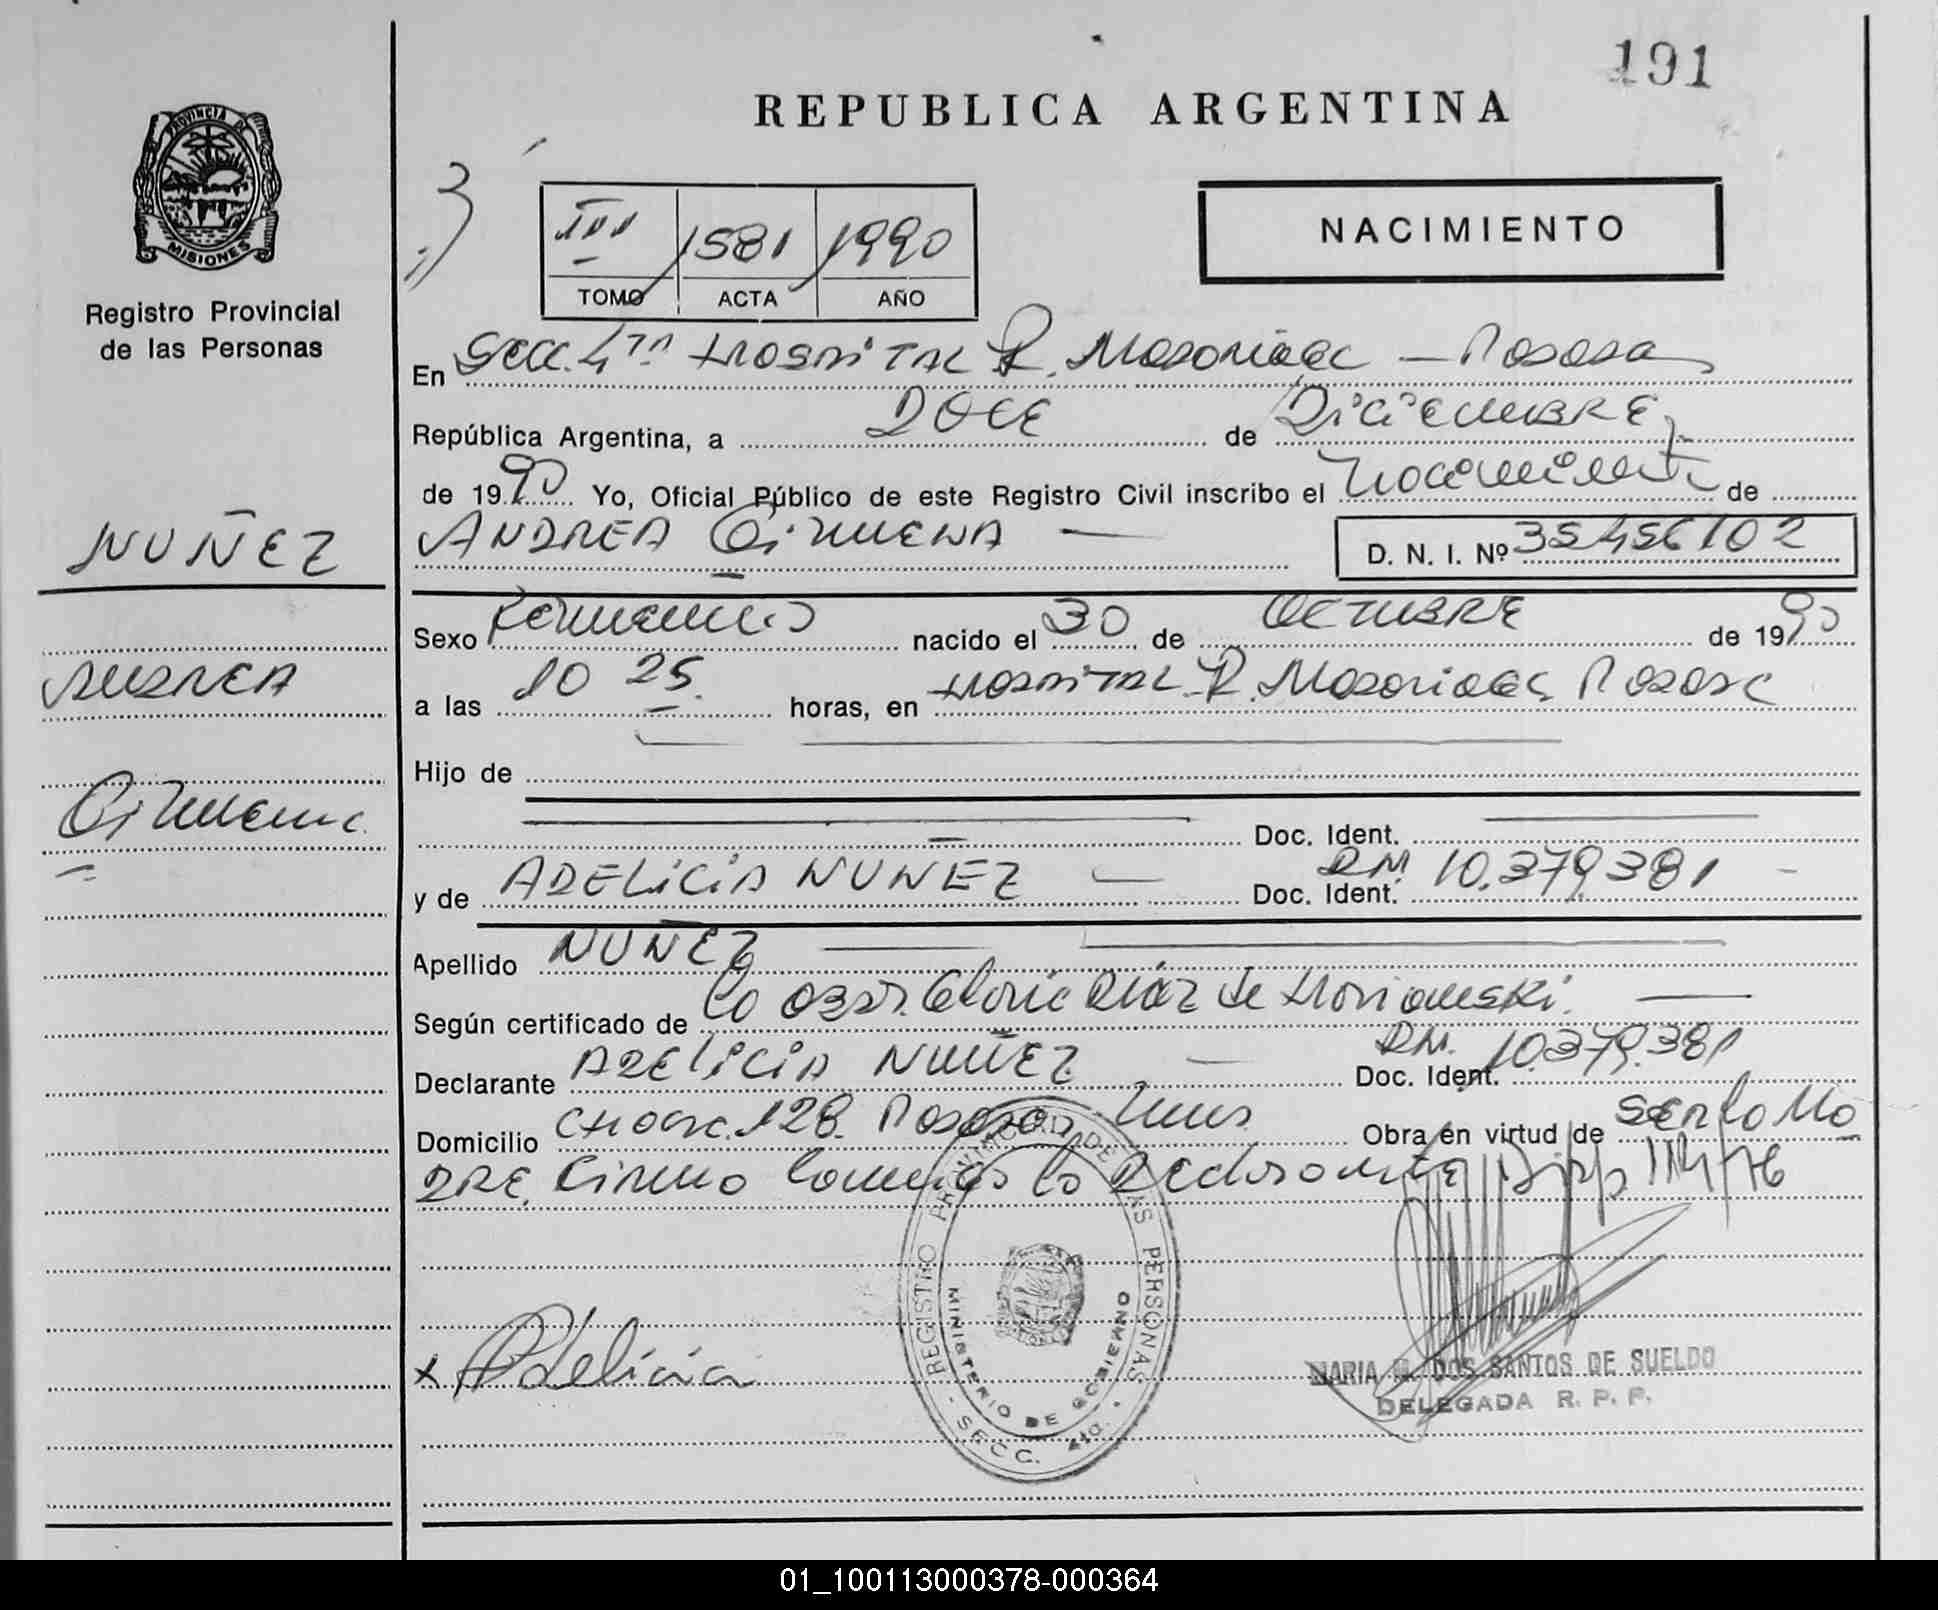 191
REPUBLICA ARGENTINA
PROVINCIA DE
MISIONES
Registro Provincial
de las Personas
3
III 1581 1990
TOMO ACTA AÑO
NACIMIENTO
En Secc. 4ta Hospital R. Madariaga — Posadas
República Argentina, a DOCE de DiciEMBRE
de 1990 Yo, Oficial Público de este Registro Civil inscribo el Nacimiento de
ANDREA GiMENA — D. N. I. Nº 35456102
NUÑEZ
ANDREA
Gimena
Sexo Femenino nacido el 30 de OCTUBRE de 1990
a las 10 25 horas, en Hospital R. Madariaga Posadas
Hijo de
Doc. Ident.
y de ADELiCiA NUNEZ — Doc. Ident. DNI 10.379.381 -
Apellido NUNEZ
Según certificado de la Obst. Gloria Diaz de
Declarante ADELiCiA NUÑEZ — Doc. Ident. DNI. 10.379.381
Domicilio 128. Posadas Mnes. Obra en virtud de SER la MA
DRE. Firma la Declarante
x Adelicia
REGISTRO PROVINCIAL DE LAS PERSONAS - SECC. 4ta. -
MINISTERIO DE GOBIERNO
MARIA M. DOS SANTOS DE SUELDO
DELEGADA R. P. P.
01_100113000378-000364